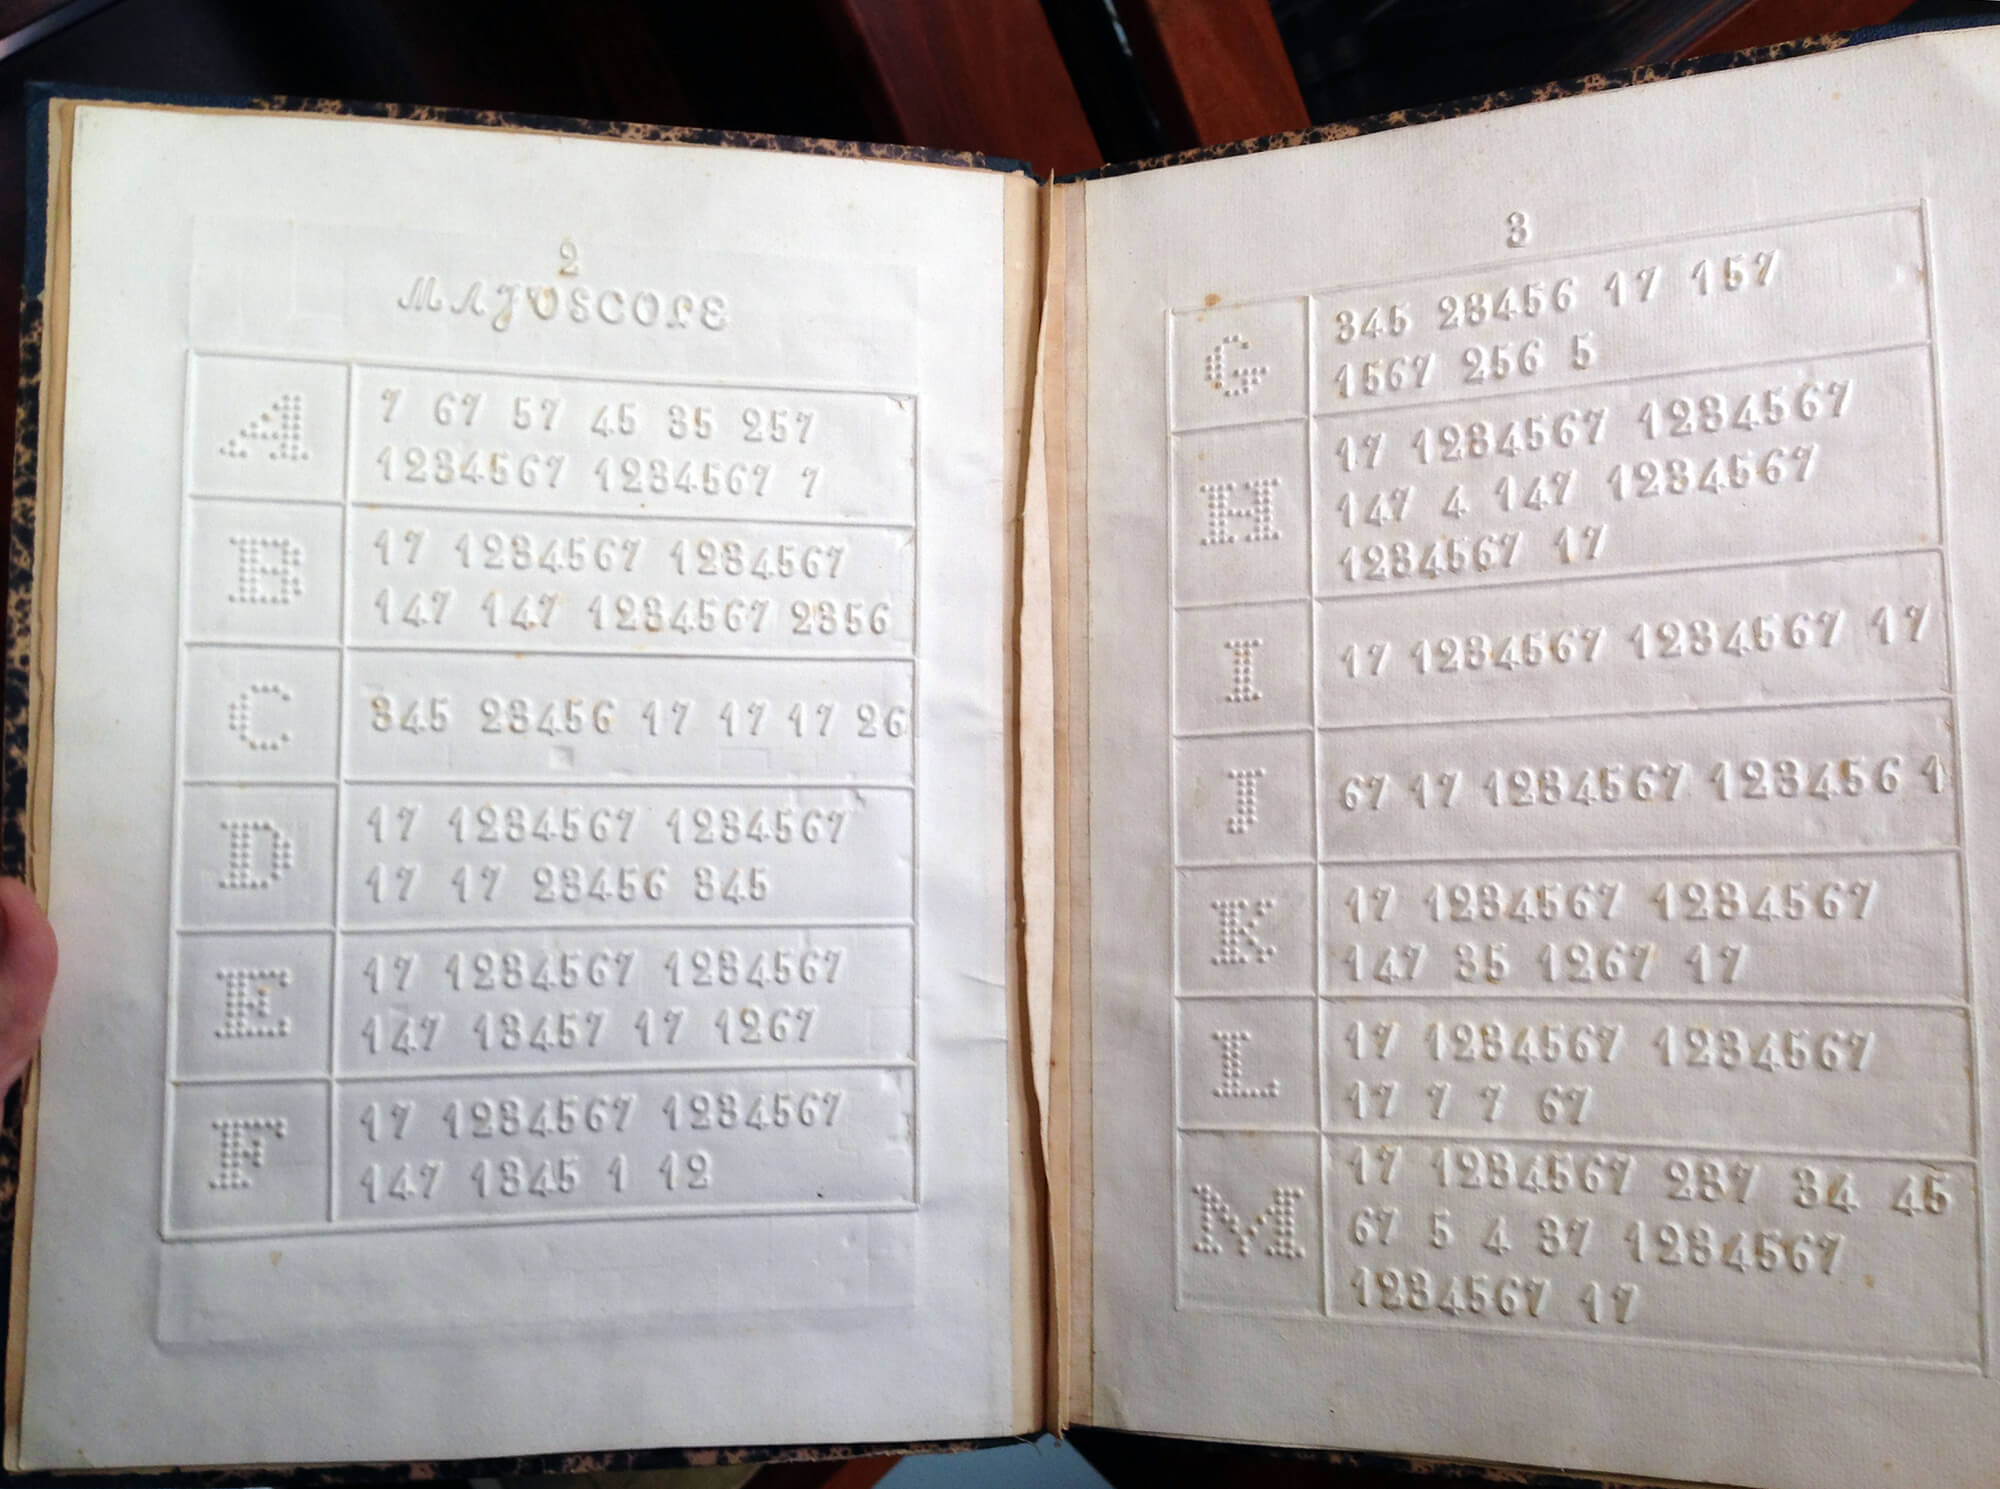 2
MAJUSCOLE
A
7 67 57 45 35 257
1234567 1234567 7
B
17 1234567 1234567
147 147 1234567 2356
C
345 23456 17 17 17 26
D
17 1234567 1234567
17 17 23456 345
E
17 1234567 1234567
147 13457 17 1267
F
17 1234567 1234567
147 1345 1 12
3
G
345 23456 17 157
1567 256 5
H
17 1234567 1234567
147 4 147 1234567
1234567 17
I
17 1234567 1234567 17
J
67 17 1234567 123456 1
K
17 1234567 1234567
147 35 1267 17
L
17 1234567 1234567
17 7 7 67
M
17 1234567 237 34 45
67 5 4 37 1234567
1234567 17